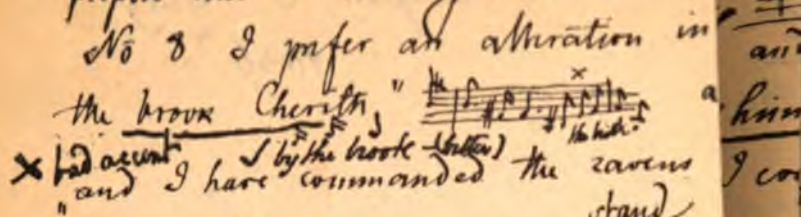 No 8 I prefer an alteration in
the brook Cherith,"
the brook
× bad accent by the brook (better)
"and I have commanded the ravens
stand
and
a him
I co